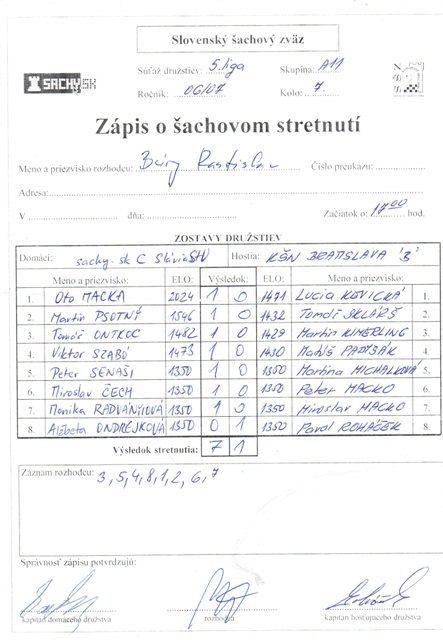 Slovenský šachový zväz
Súťaž družstiev: 5. liga Skupina: A11
SACHY.SK
Ročník: 06/07 Kolo: 7.
Zápis o šachovom stretnutí
Meno a priezvisko rozhodcu: Rastislav Číslo preukazu:
Adresa:
V dňa: Začiatok o: 17 00 hod.
ZOSTAVY DRUŽSTIEV
Domáci: sachy.sk C Slávia STU Hostia: KŠN BRATISLAVA 'B'
Meno a priezvisko: ELO: Výsledok: ELO: Meno a priezvisko:
1. Oto MACKA 2024 1 0 1471 Lucia KOVICKÁ 1.
2. Martin PSOTNÝ 1546 1 0 1432 Tomáš SKLÁRŠ 2.
3. Tomáš ONTKOC 1482 1 0 1429 Martin KIMERLING 3.
4. Viktor SZABÓ 1473 1 0 1430 Matúš 4.
5. Peter SENAŠI 1350 1 0 1350 Martina MICHALKOVÁ 5.
6. Miroslav ČECH 1350 1 0 1350 Peter MACKO 6.
7. Monika RADVÁNYIOVÁ 1350 1 0 1350 Miroslav MACKO 7.
8. Alžbeta ONDREJKOVÁ 1350 0 1 1350 Pavol ROHÁČEK 8.
Výsledok stretnutia: 7 1
Záznam rozhodcu: 3, 5, 4, 8, 1, 2, 6, 7
Správnosť zápisu potvrdzujú:
kapitán domáceho družstva rozhodca kapitán hosťujúceho družstva